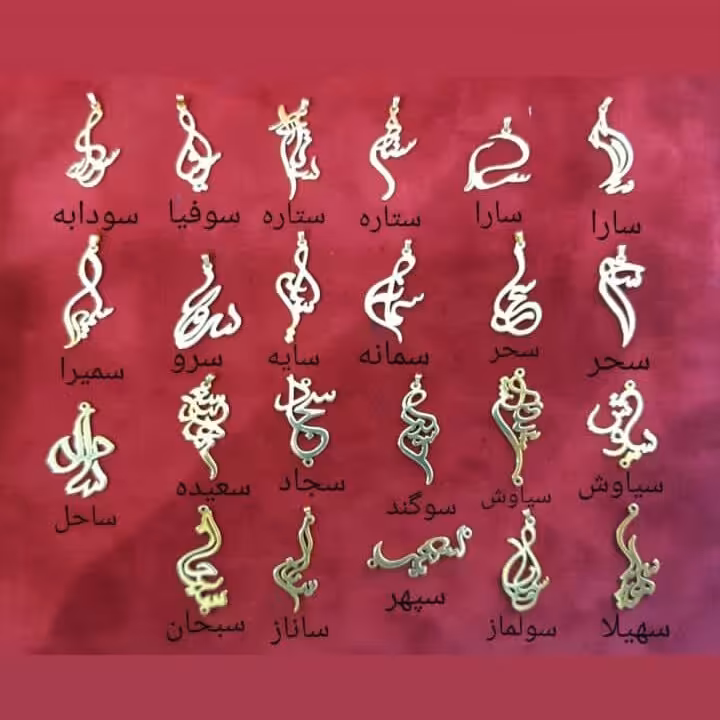 سارا سارا ستاره ستاره سوفیا سودابه
سحر سحر سمانه سایه سرو سمیرا
سیاوش سیاوش سوگند سجاد سعیده ساحل
سهیلا سولماز سپهر ساناز سبحان